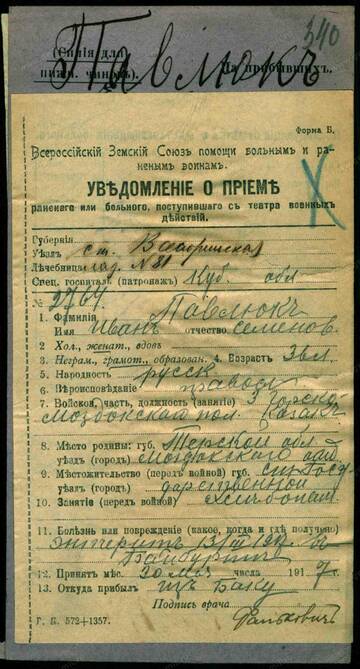 340
(Синія для Павлюкъ На прибывшихъ.
нижн. чиновъ).
Форма Б.
Всероссійскій Земскій Союзъ помощи больнымъ и ра-
ненымъ воинамъ.
УВѢДОМЛЕНІЕ О ПРІЕМѢ
раненаго или больного, поступившаго съ театра военныхъ
дѣйствій.
Губернія
Уѣздъ ст.
Лѣчебница лаз. № 81
Спец. госпиталь (патронажъ) Куб. обл
№ 2764
1. Фамилія Павлюкъ
Имя Иванъ отчество Семенов.
2 Хол., женат., вдовъ
3. Неграм., грамот., образован. 4. Возрастъ 36 л.
5. Народность русск
6. Вѣроисповѣданіе правосл
7. Войсков. часть, должность (занятіе) 3 Горско
Моздокскаго пол. Казакъ
8. Мѣсто родины: губ. Терской обл
уѣздъ (городъ) Моздокскаго
9. Мѣстожительство (передъ войной) губ. ст. Госу
уѣздъ (городъ) дарственной
10. Занятіе (передъ войной) хлѣбопаш.
11. Болѣзнь или поврежденіе (какое, когда и гдѣ получено)
Энтеритъ 13/III 1917. въ
Байбуртѣ
12. Принятъ мѣс. 30 мая числа 1917 г.
13. Откуда прибылъ Изъ Баку
Подпись врача
Г. Б. 572+1357.